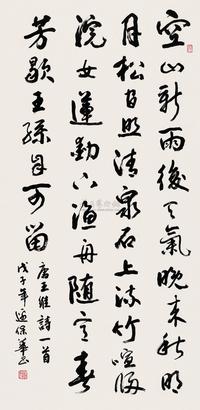 空山新雨後天氣晚来秋明
月松間照清泉石上流竹喧歸
浣女蓮動下漁舟隨意春
芳歇王孫自可留
唐王維詩一首
戊子年保華书